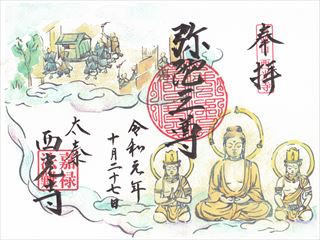 奉拝
弥陀三尊
令和元年
十月二十七日
太秦
西光寺
嘉禄